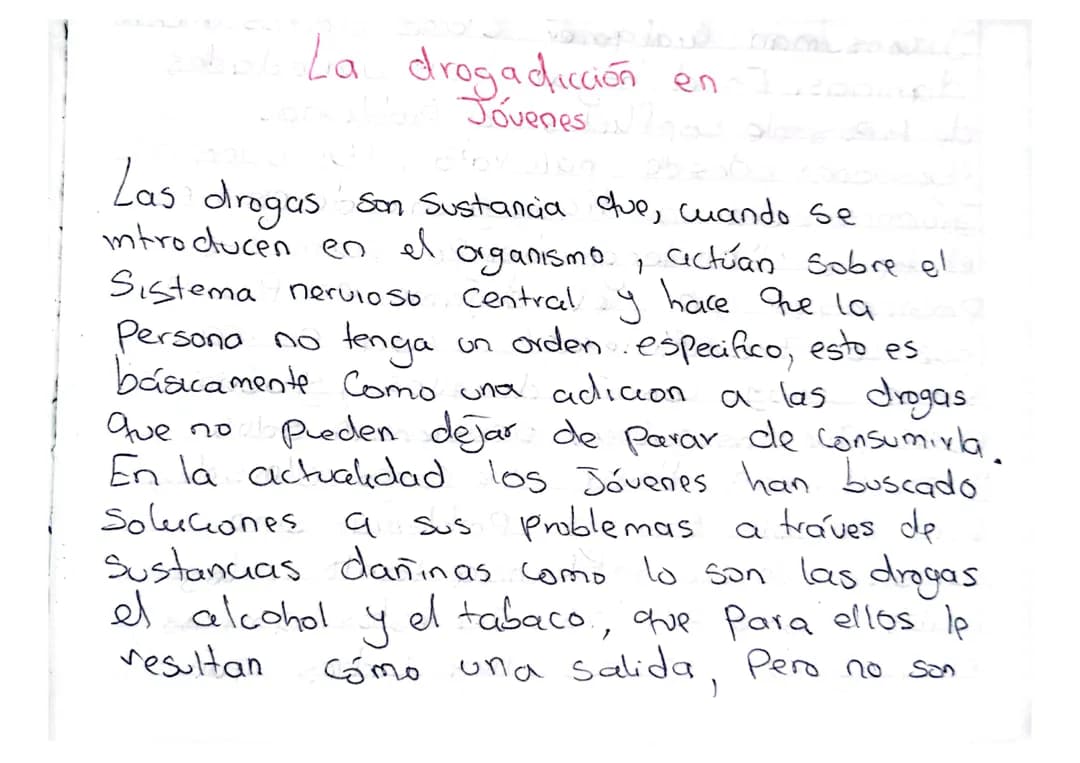 La drogadicción en
Jóvenes
Las drogas son Sustancia que, cuando se
introducen en el organismo, actúan sobre el
Sistema nervioso Central y hace que la
Persona no tenga un orden especifico, esto es
básicamente Como una adicion a las drogas
que no pueden dejar de parar de consumirla.
En la actualidad los Jóvenes han buscado
Soluciones a sus problemas a tráves de
Sustancias dañinas como lo son las drogas
el alcohol y el tabaco, que Para ellos le
resultan cómo una salida, Pero no son